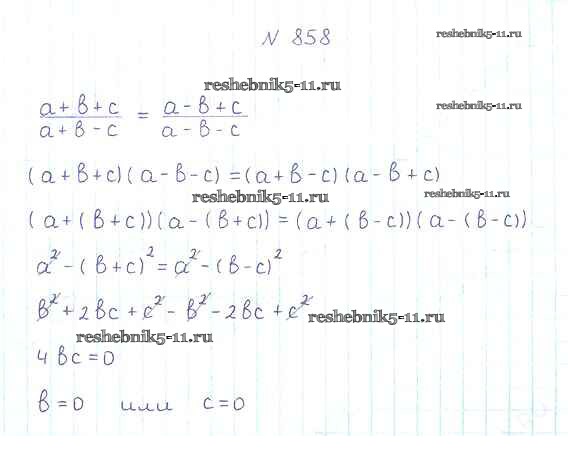 N 858
reshebnik5-11.ru
reshebnik5-11.ru
(a + b + c)/(a + b - c) = (a - b + c)/(a - b - c)
reshebnik5-11.ru
(a + b + c)(a - b - c) = (a + b - c)(a - b + c)
reshebnik5-11.ru
reshebnik5-11.ru
(a + (b + c))(a - (b + c)) = (a + (b - c))(a - (b - c))
a² - (b + c)² = a² - (b - c)²
b² + 2bc + c² - b² - 2bc + c²
reshebnik5-11.ru
reshebnik5-11.ru
4bc = 0
b = 0 или c = 0